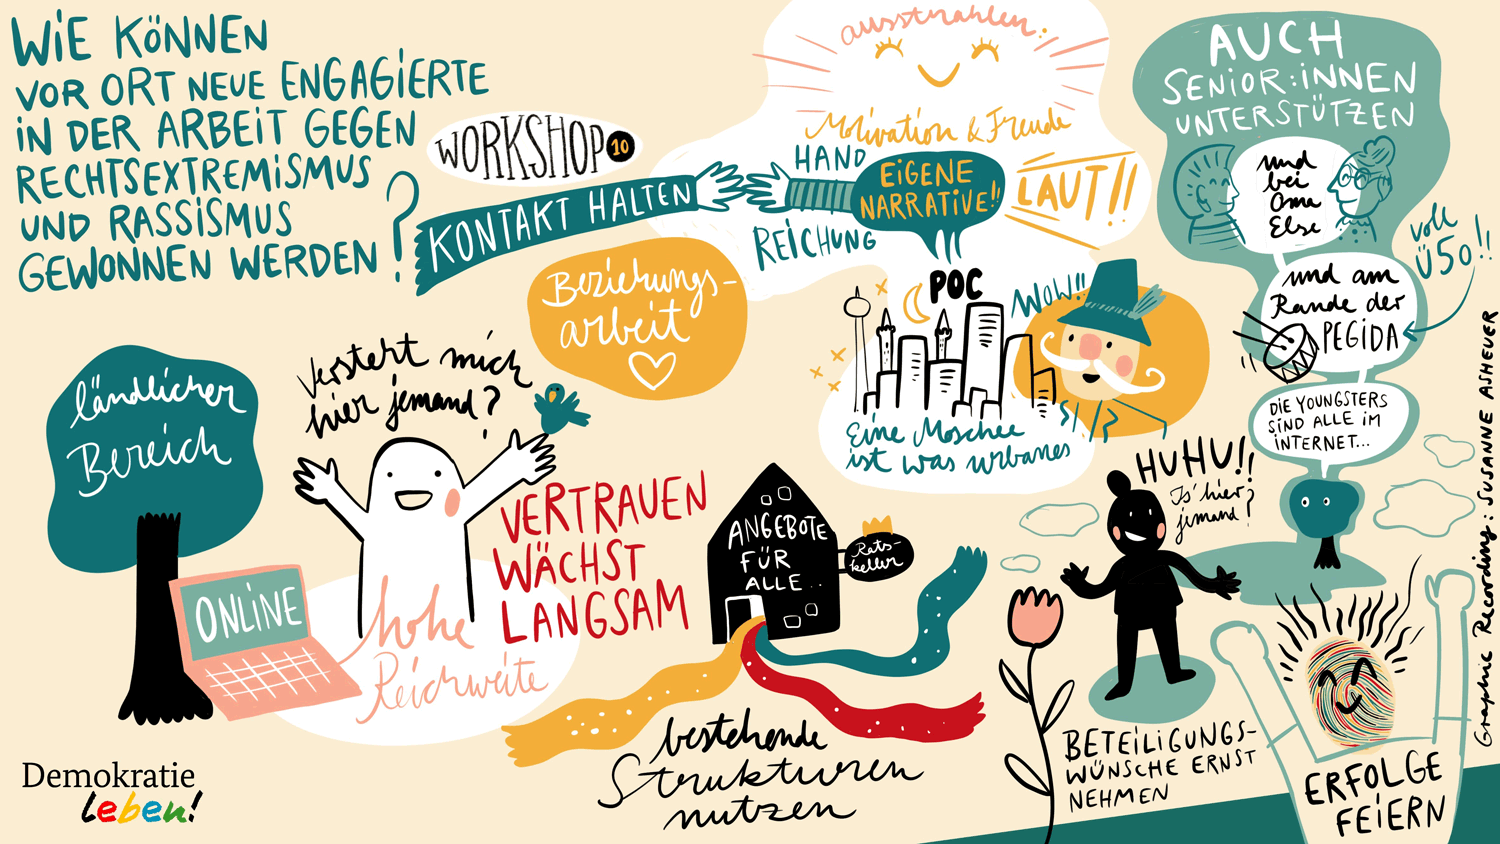 WIE KÖNNEN
VOR ORT NEUE ENGAGIERTE
IN DER ARBEIT GEGEN
RECHTSEXTREMISMUS
UND RASSISMUS
GEWONNEN WERDEN?
WORKSHOP 10
KONTAKT HALTEN
ausstrahlen:
Motivation & Freude
HAND
REICHUNG
EIGENE
NARRATIVE!!
LAUT!!
POC
WOW!!
Eine Moschee
ist was urbanes
AUCH
SENIOR:INNEN
UNTERSTÜTZEN
und
bei
Oma
Else
und am
Rande der
PEGIDA
voll
Ü50!!
DIE YOUNGSTERS
SIND ALLE IM
INTERNET...
Beziehungs-
arbeit
ländlicher
Bereich
Versteht mich
hier jemand?
ONLINE
hohe
Reichweite
VERTRAUEN
WÄCHST
LANGSAM
ANGEBOTE
FÜR
ALLE...
Rats-
keller
bestehende
Strukturen
nutzen
HUHU!!
Is' hier
jemand?
BETEILIGUNGS-
WÜNSCHE ERNST
NEHMEN
ERFOLGE
FEIERN
Graphic Recording: SUSANNE ASHEUER
Demokratie
leben!